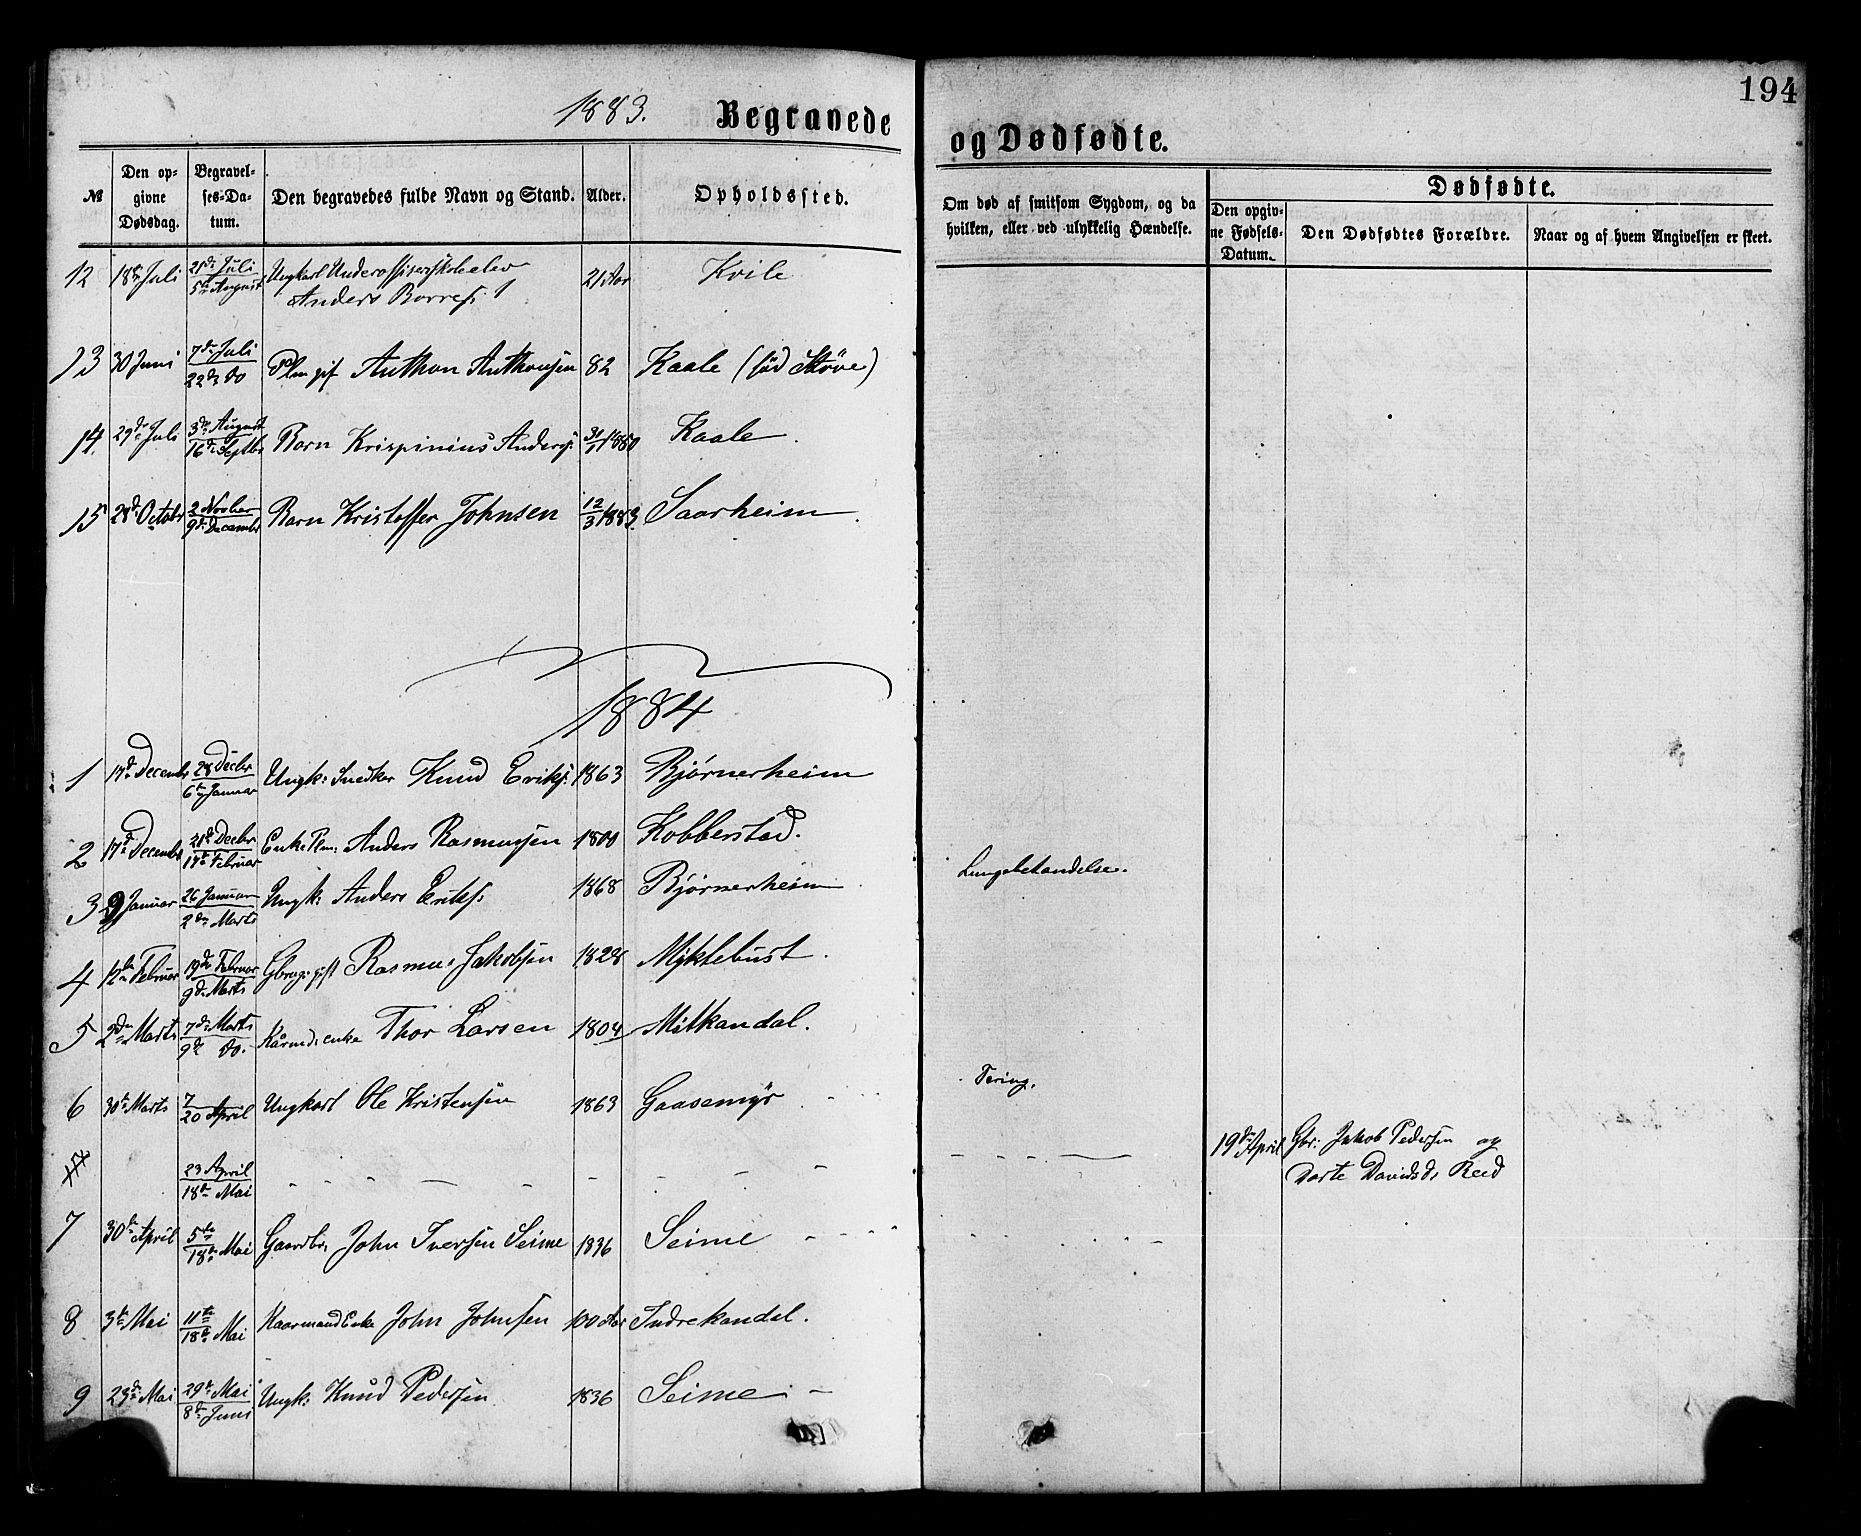 194
1883.
Begravede
og Dødfødte.
№
Den op-
givne
Dødsdag.
Begravel-
ses-Da-
tum.
Den begravedes fulde Navn og Stand.
Alder.
Opholdssted.
Om død af smitsom Sygdom, og da
hvilken, eller ved ulykkelig Hændelse.
Dødfødte.
Den opgiv-
ne Fødsels-
Datum.
Den Dødfødtes Forældre.
Naar og af hvem Angivelsen er skeet.
12 18de Juli 21de Juli Ungkarl Underofficerskoleelev 21 Aar Kvile
5te August Anders Borres:
13 30 Juni 7de Juli Plm gift Anthon Anthonsen 82 Kaale (fød Støve)
22de do
14. 29de Juli 3de August Barn Krispinius Anders: 1880 Kaale.
16de Septbr
15 28de Octobr 2 Novber Barn Kristoffer Johnsen 12/3 1883. Saarheim.
9de Decembr
1884
1 17de Decembr 28 Decbr Ungk: Snedker Knud Eriks: 1863 Bjørnerheim
6te Januar
2 17de Decembr 21de Decbr Enke Plm: Anders Rasmussen 1800 Kobberstad.
17de Februar
3 Januar 26 Januar Ungk: Anders Eriks: 1868 Bjørnerheim Lungebetændelse.
2den Marts
4 12te Februar 19de Februar Gbrug: gift Rasmus Jakobsen 1828 Myklebust.
9de Marts
5 2den Marts 7de Marts Kårmd: enke Thor Larsen 1804 Midkandal.
9de do.
6 30te Marts 7 Ungkarl Ole Kristensen 1863 Gaasemyr Tæring.
20 April
23 April
18de Mai
19de April Gbr: Jakob Pedersen og
Dorte Davidsd: Reed
7 30de April 5te Gaardbr: John Iversen Seime 1836 Seime
18de Mai
8 3de Mai 11te Kaarmand Enke John Johnsen 100 Aar Indrekandal.
18de Mai
9 23de Mai 29de Mai Ungk: Knud Pedersen 1836 Seime
8de Juni